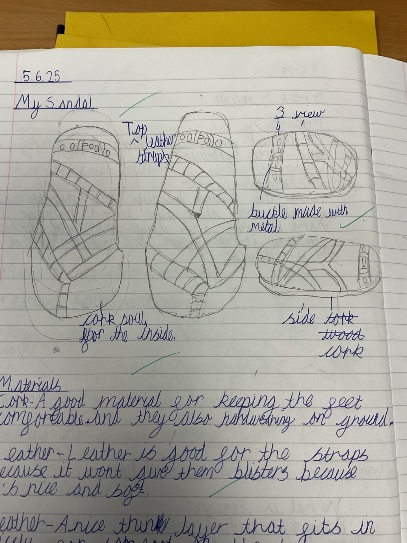 5 6.25
My Sandal
Top
leather
straps
3 view
buckle made with
metal
cork soul
for the inside.
side
cork
Materials
Cork-A good material for keeping the feet
comfortable. and they also on ground.
eather-Leather is good for the straps
ecause it wont give them blisters because
's nice and soft.
eather-A nice layer that fits in